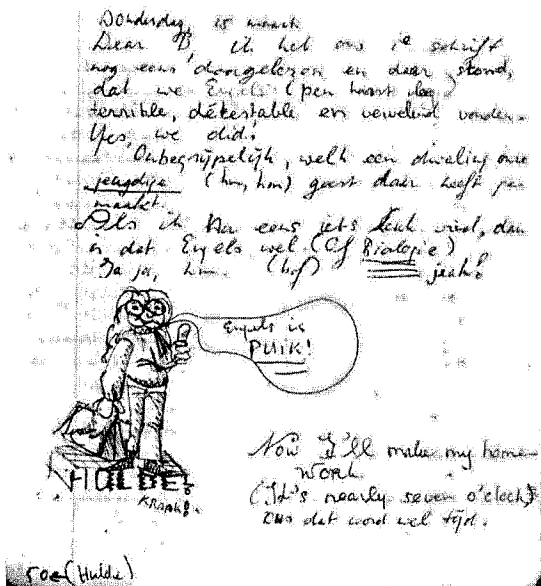 Donderdag, 15 maart
Dear B, ik heb ons 1e schrift
nog eens doorgelezen en daar stond,
dat we Engels (pen worst leeg)
terrible, détestable en vervelend vonden.
Yes, we did!
Onbegrijpelijk, welk een dwaling onze
jeugdige (hm, hm) geest daar heeft ge-
maakt.
Als ik nu eens iets leuk vind, dan
is dat Engels wel (Of Biologie)
Ja ja, hm (hof) jeah!
Engels is
PUIK!
HULDE!
KRAAK!
Now I'll make my home-
work
(It's nearly seven o'clock)
Dus dat word wel tijd.
roe (Hulde)